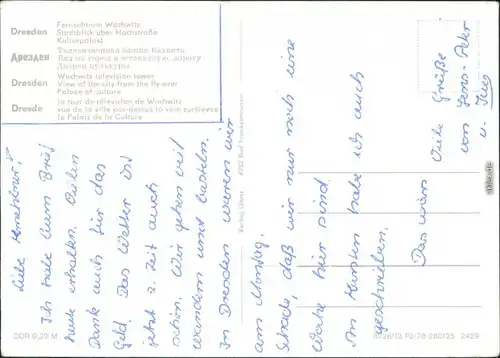 Dresden
Fernsehturm Wachwitz
Stadtblick über Hochstraße
Kulturpalast
Дрезден
Телевизионная башня Вахвитц
Вид на город и эстакадную дорогу
Дворец культуры
Dresden
Wachwitz television tower
View of the city from the fly-over
Palace of culture
Dresde
La tour de télévision de Wachwitz
vue de la ville par-dessus la voie surélevée
Le Palais de la Culture
Ich habe Euren Brief
heute erhalten. Vielen
Dank auch für das
Geld. Das Wetter ist
jetzt z. Zeit auch
schön. Wir gehen viel
wandern und basteln.
In Dresden waren wir
am Montag.
Schade, daß wir nur noch eine
Woche hier sind.
An Karsten habe ich auch
geschrieben.
Das wärs
Viele Grüße
von Jens-Peter
u.
DDR 0,20 M
Verlag 8702 Bad
III/26/13 P2/78-280125 2429